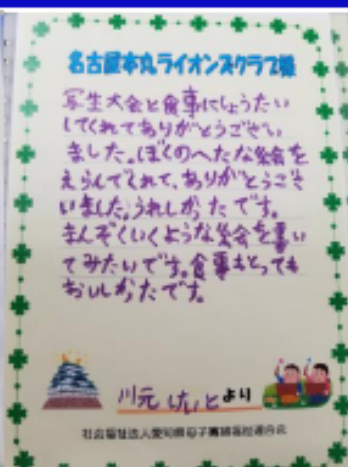 名古屋本丸ライオンズクラブ様
写生大会と食事にしょうたい
してくれてありがとうござい
ました。ぼくのへたな絵を
えらんでくれて、ありがとうござ
いました。うれしかったです。
まんぞくいくような絵を書い
てみたいです。食事もとっても
おいしかったです。
川元 けいと より
社会福祉法人愛知県母子寡婦福祉連合会